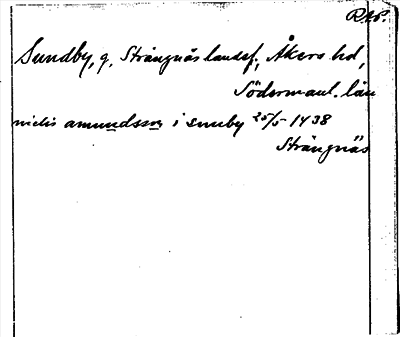 Rap.
Sundby, g. Strängnäs landsf., Åkers hd,
Södermanl. län
nielis amundsson i sunby 25/5 1438
Strängnäs